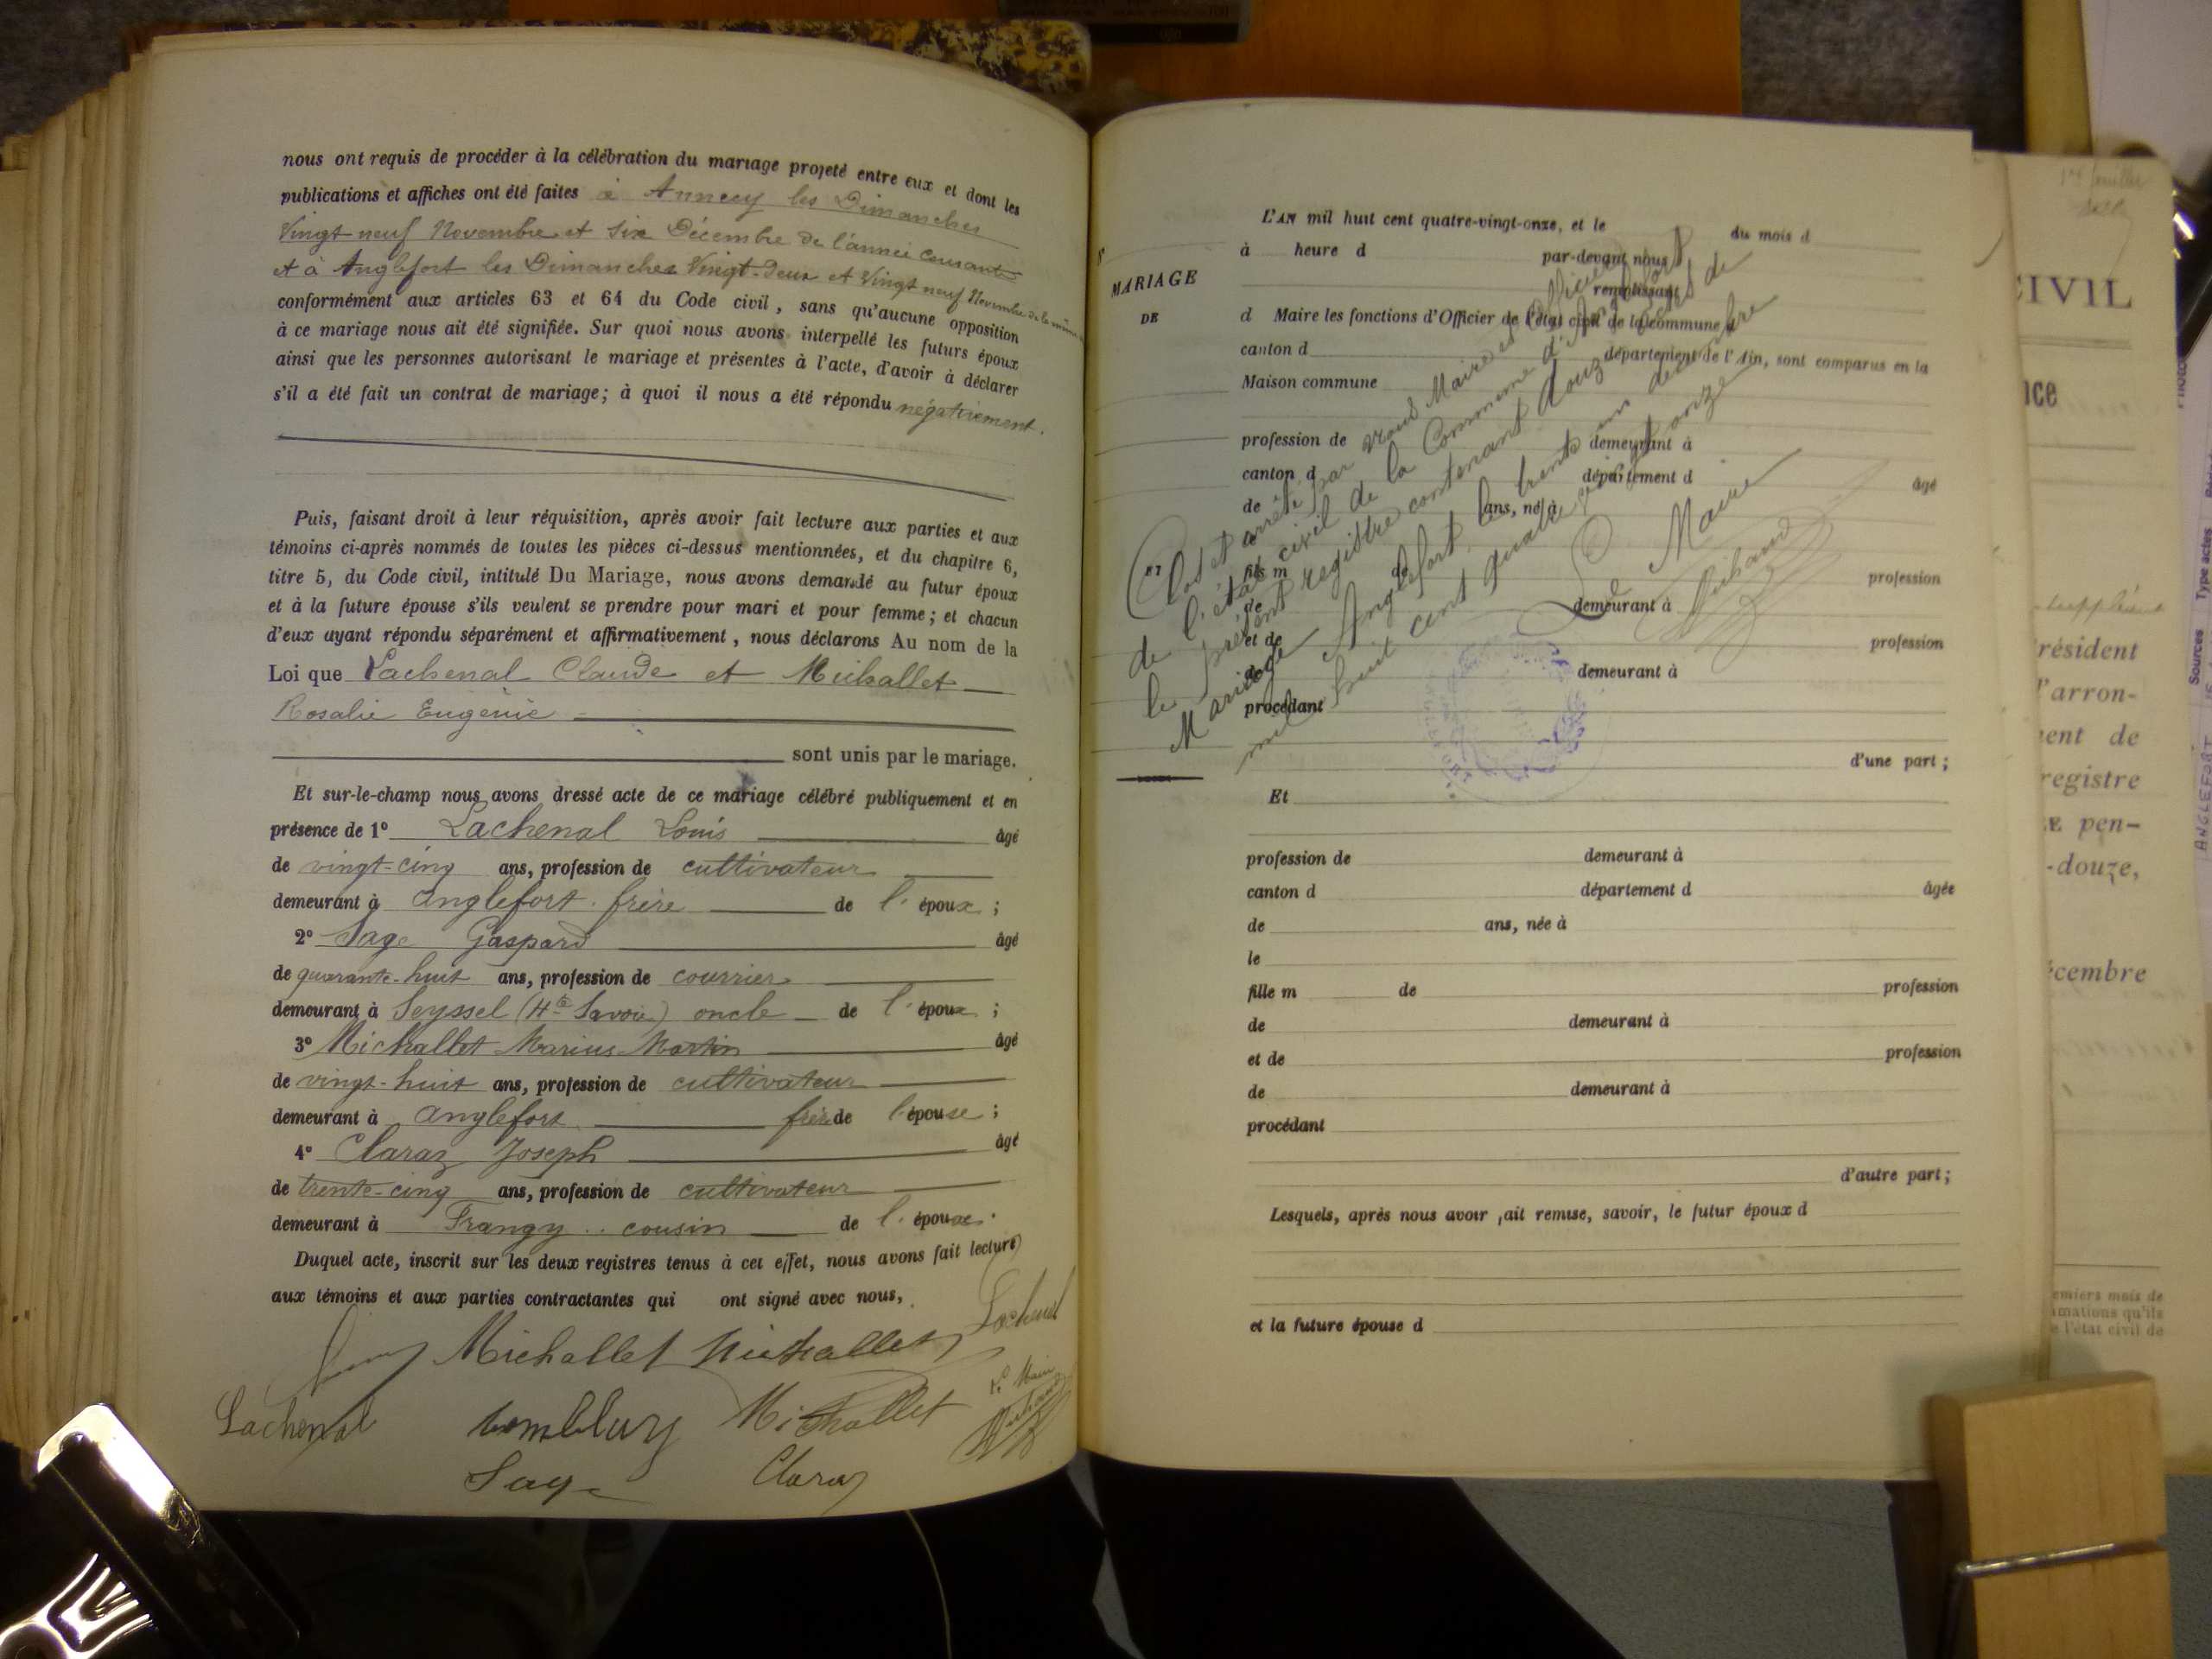 nous ont requis de procéder à la célébration du mariage projeté entre eux et dont les
publications et affiches ont été faites à Annecy les Dimanches
Vingt-neuf Novembre et Six Décembre de l'année Courante
et à Anglefort les Dimanches Vingt-Deux et Vingt neuf Novembre de la même
conformément aux articles 63 et 64 du Code civil, sans qu'aucune opposition
à ce mariage nous ait été signifiée. Sur quoi nous avons interpellé les futurs époux
ainsi que les personnes autorisant le mariage et présentes à l'acte, d'avoir à déclarer
s'il a été fait un contrat de mariage; à quoi il nous a été répondu négativement.
Puis, faisant droit à leur réquisition, après avoir fait lecture aux parties et aux
témoins ci-après nommés de toutes les pièces ci-dessus mentionnées, et du chapitre 6,
titre 5, du Code civil, intitulé Du Mariage, nous avons demandé au futur époux
et à la future épouse s'ils veulent se prendre pour mari et pour femme; et chacun
d'eux ayant répondu séparément et affirmativement, nous déclarons Au nom de la
Loi que Lachenal Claude et Michallet
Rosalie Eugénie
sont unis par le mariage.
Et sur-le-champ nous avons dressé acte de ce mariage célébré publiquement et en
présence de 1° Lachenal Louis âgé
de vingt-cinq ans, profession de cultivateur
demeurant à Anglefort frère de l'époux;
2° Sage Gaspard âgé
de quarante-huit ans, profession de courrier
demeurant à Seyssel (Hte Savoie) oncle de l'époux;
3° Michallet Marius Martin âgé
de vingt-huit ans, profession de cultivateur
demeurant à Anglefort frère de l'épouse;
4° Claraz Joseph âgé
de trente-cinq ans, profession de cultivateur
demeurant à Frangy cousin de l'époux.
Duquel acte, inscrit sur les deux registres tenus à cet effet, nous avons fait lecture
aux témoins et aux parties contractantes qui ont signé avec nous,
Michallet Michallet Lachenal
Lachenal Michallet Le Maire
Sage Claraz
L'AN mil huit cent quatre-vingt-onze, et le du mois d
à heure d par-devant nous
remplissant
MARIAGE
DE
d Maire les fonctions d'Officier de l'état civil de la commune d
canton d département de l'Ain, sont comparus en la
Maison commune
profession de demeurant à
canton d département d âgé
de ans, né à
ET
fils m de profession
de demeurant à
et de profession
de demeurant à
procédant
d'une part;
Clos et arrêté par nous Maire et Officier
de l'état civil de la Commune d'Anglefort
le présent registre contenant douze actes de
Mariage Anglefort le trente un décembre
mil huit cent quatre vingt onze
Le Maire
Et
profession de demeurant à
canton d département d âgée
de ans, née à
le
fille m de profession
de demeurant à
et de profession
de demeurant à
procédant
d'autre part;
Lesquels, après nous avoir fait remise, savoir, le futur époux d
et la future épouse d
CIVIL
nce
résident
l'arron-
ent de
registre
pen-
-douze,
écembre
emiers mois de
mations qu'ils
l'état civil de
Sources Type actes
ANGLEFORT